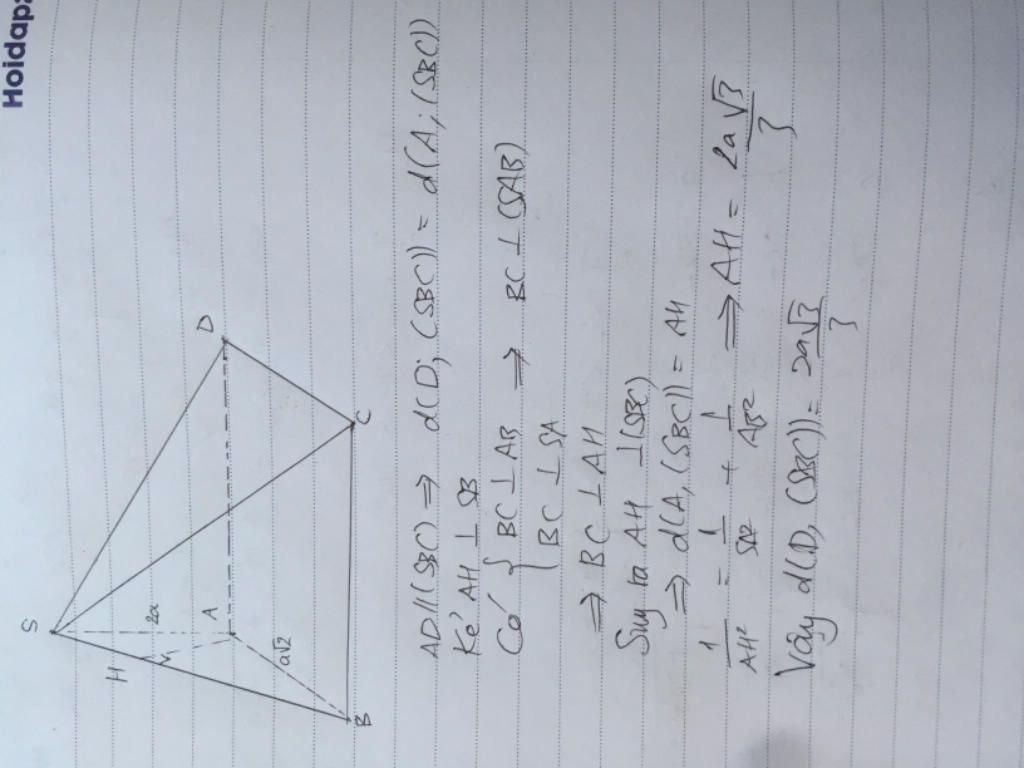 Hoidap
S
H
2a
A
D
a√2
B
C
AD // (SBC) ⇒ d(D; (SBC)) = d(A; (SBC))
Kẻ AH ⊥ SB
Có { BC ⊥ AB
BC ⊥ SA ⇒ BC ⊥ (SAB)
⇒ BC ⊥ AH
Suy ra AH ⊥ (SBC)
⇒ d(A, (SBC)) = AH
1/AH² = 1/SA² + 1/AB² ⇒ AH = 2a√3/3
Vậy d(D, (SBC)) = 2a√3/3